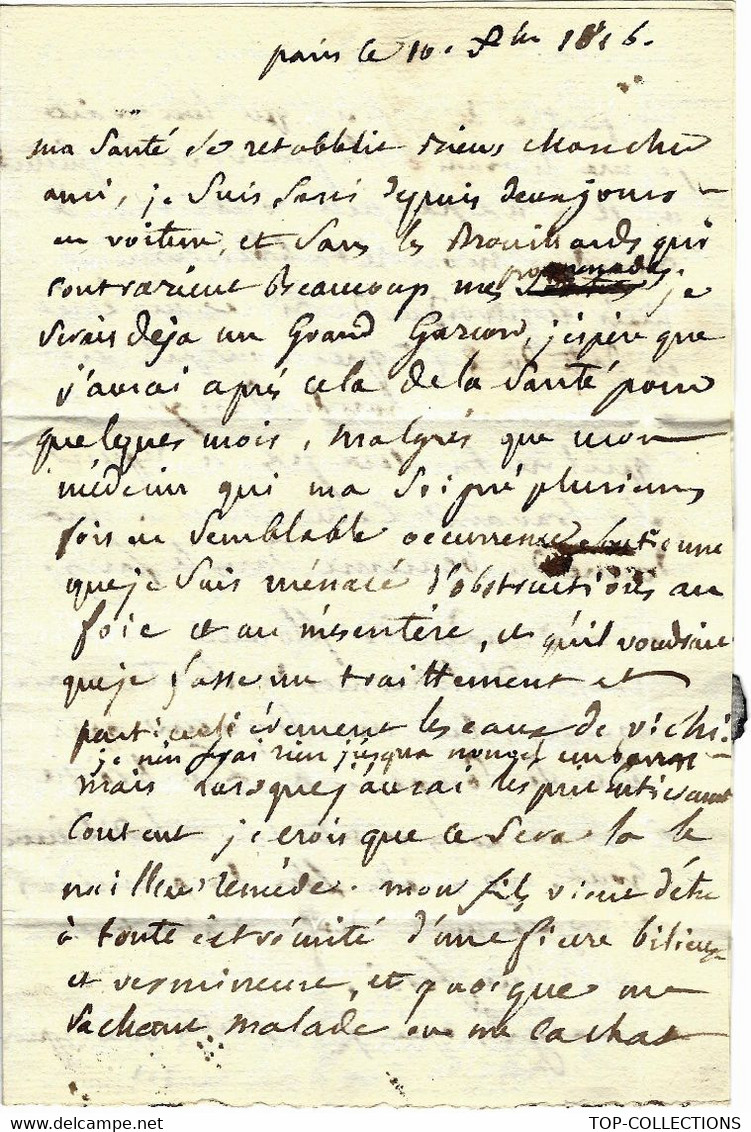 paris le 10. 8bre 1816.
ma Santé Se retabblit mieux mon cher
ami, je Suis Sorti depuis deux jours
en voiture, et Sans les Brouillards qui
contrarient Beaucoup mes promenades je
Serais deja un Grand Garcon, j'espère que
j'aurai aprés cela de la Santé pour
quelques mois, malgrés que mon
médecin qui ma Soigné plusieurs
fois en Semblable occurrence
que je Suis ménacé d'obstructions au
foie et au mésentére, et qu'il voudrait
que je fasse un traittement et
particulièrement les eaux de vichi.
je n'en ferai rien jusqua nouvel
mais Lorsque j'aurai l'esprit
Content je crois que ce Sera la le
meilleur reméde. mon fils vient d'étre
à toute extrémité d'une fievre bilieuse
et vermineuse, et quoique me
Sachant malade on me cachat
TOP-COLLECTIONS